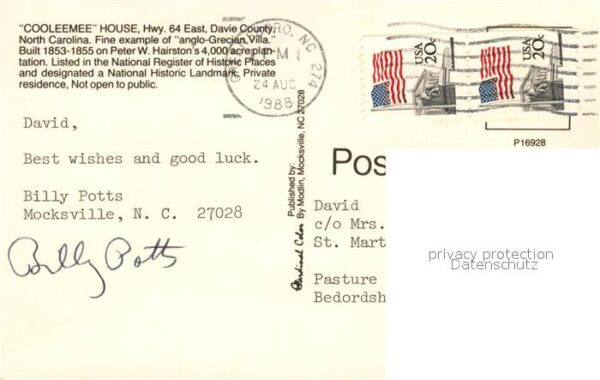 "COOLEEMEE" HOUSE, Hwy. 64 East, Davie County,
North Carolina. Fine example of "anglo-Grecian Villa."
Built 1853-1855 on Peter W. Hairston's 4,000 acre plan-
tation. Listed in the National Register of Historic Places
and designated a National Historic Landmark. Private
residence, Not open to public.
NC 274
PM
24 AUG
1988
USA
20c
USA
20c
P16928
David,
Best wishes and good luck.
Billy Potts
Mocksville, N. C. 27028
Billy Potts
Published by:
By Modlin, Mocksville, NC 27028
Cardinal Color
Pos
David
c/o Mrs.
St. Mart
Pasture
Bedordsh
privacy protection
Datenschutz